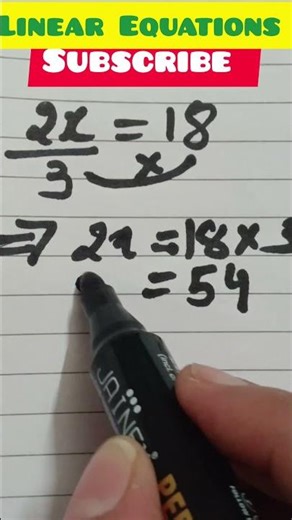 Linear Equations
Subscribe
2x/3 = 18
⇒ 2x = 18 × 3
= 54
JAINEX